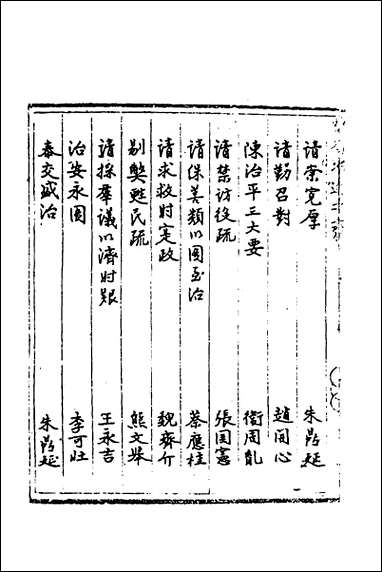 請崇寬厚 朱鼎延
請勤召對 趙開心
陳治平三大要 衛周胤
請禁訪役疏 張国憲
請保善類以圖至治 蔡應桂
請求救时定政 魏齊介
剔弊甦民疏 熊文举
請採羣議以濟时艱 王永吉
治安永图 李可
泰交盛治 朱鼎延